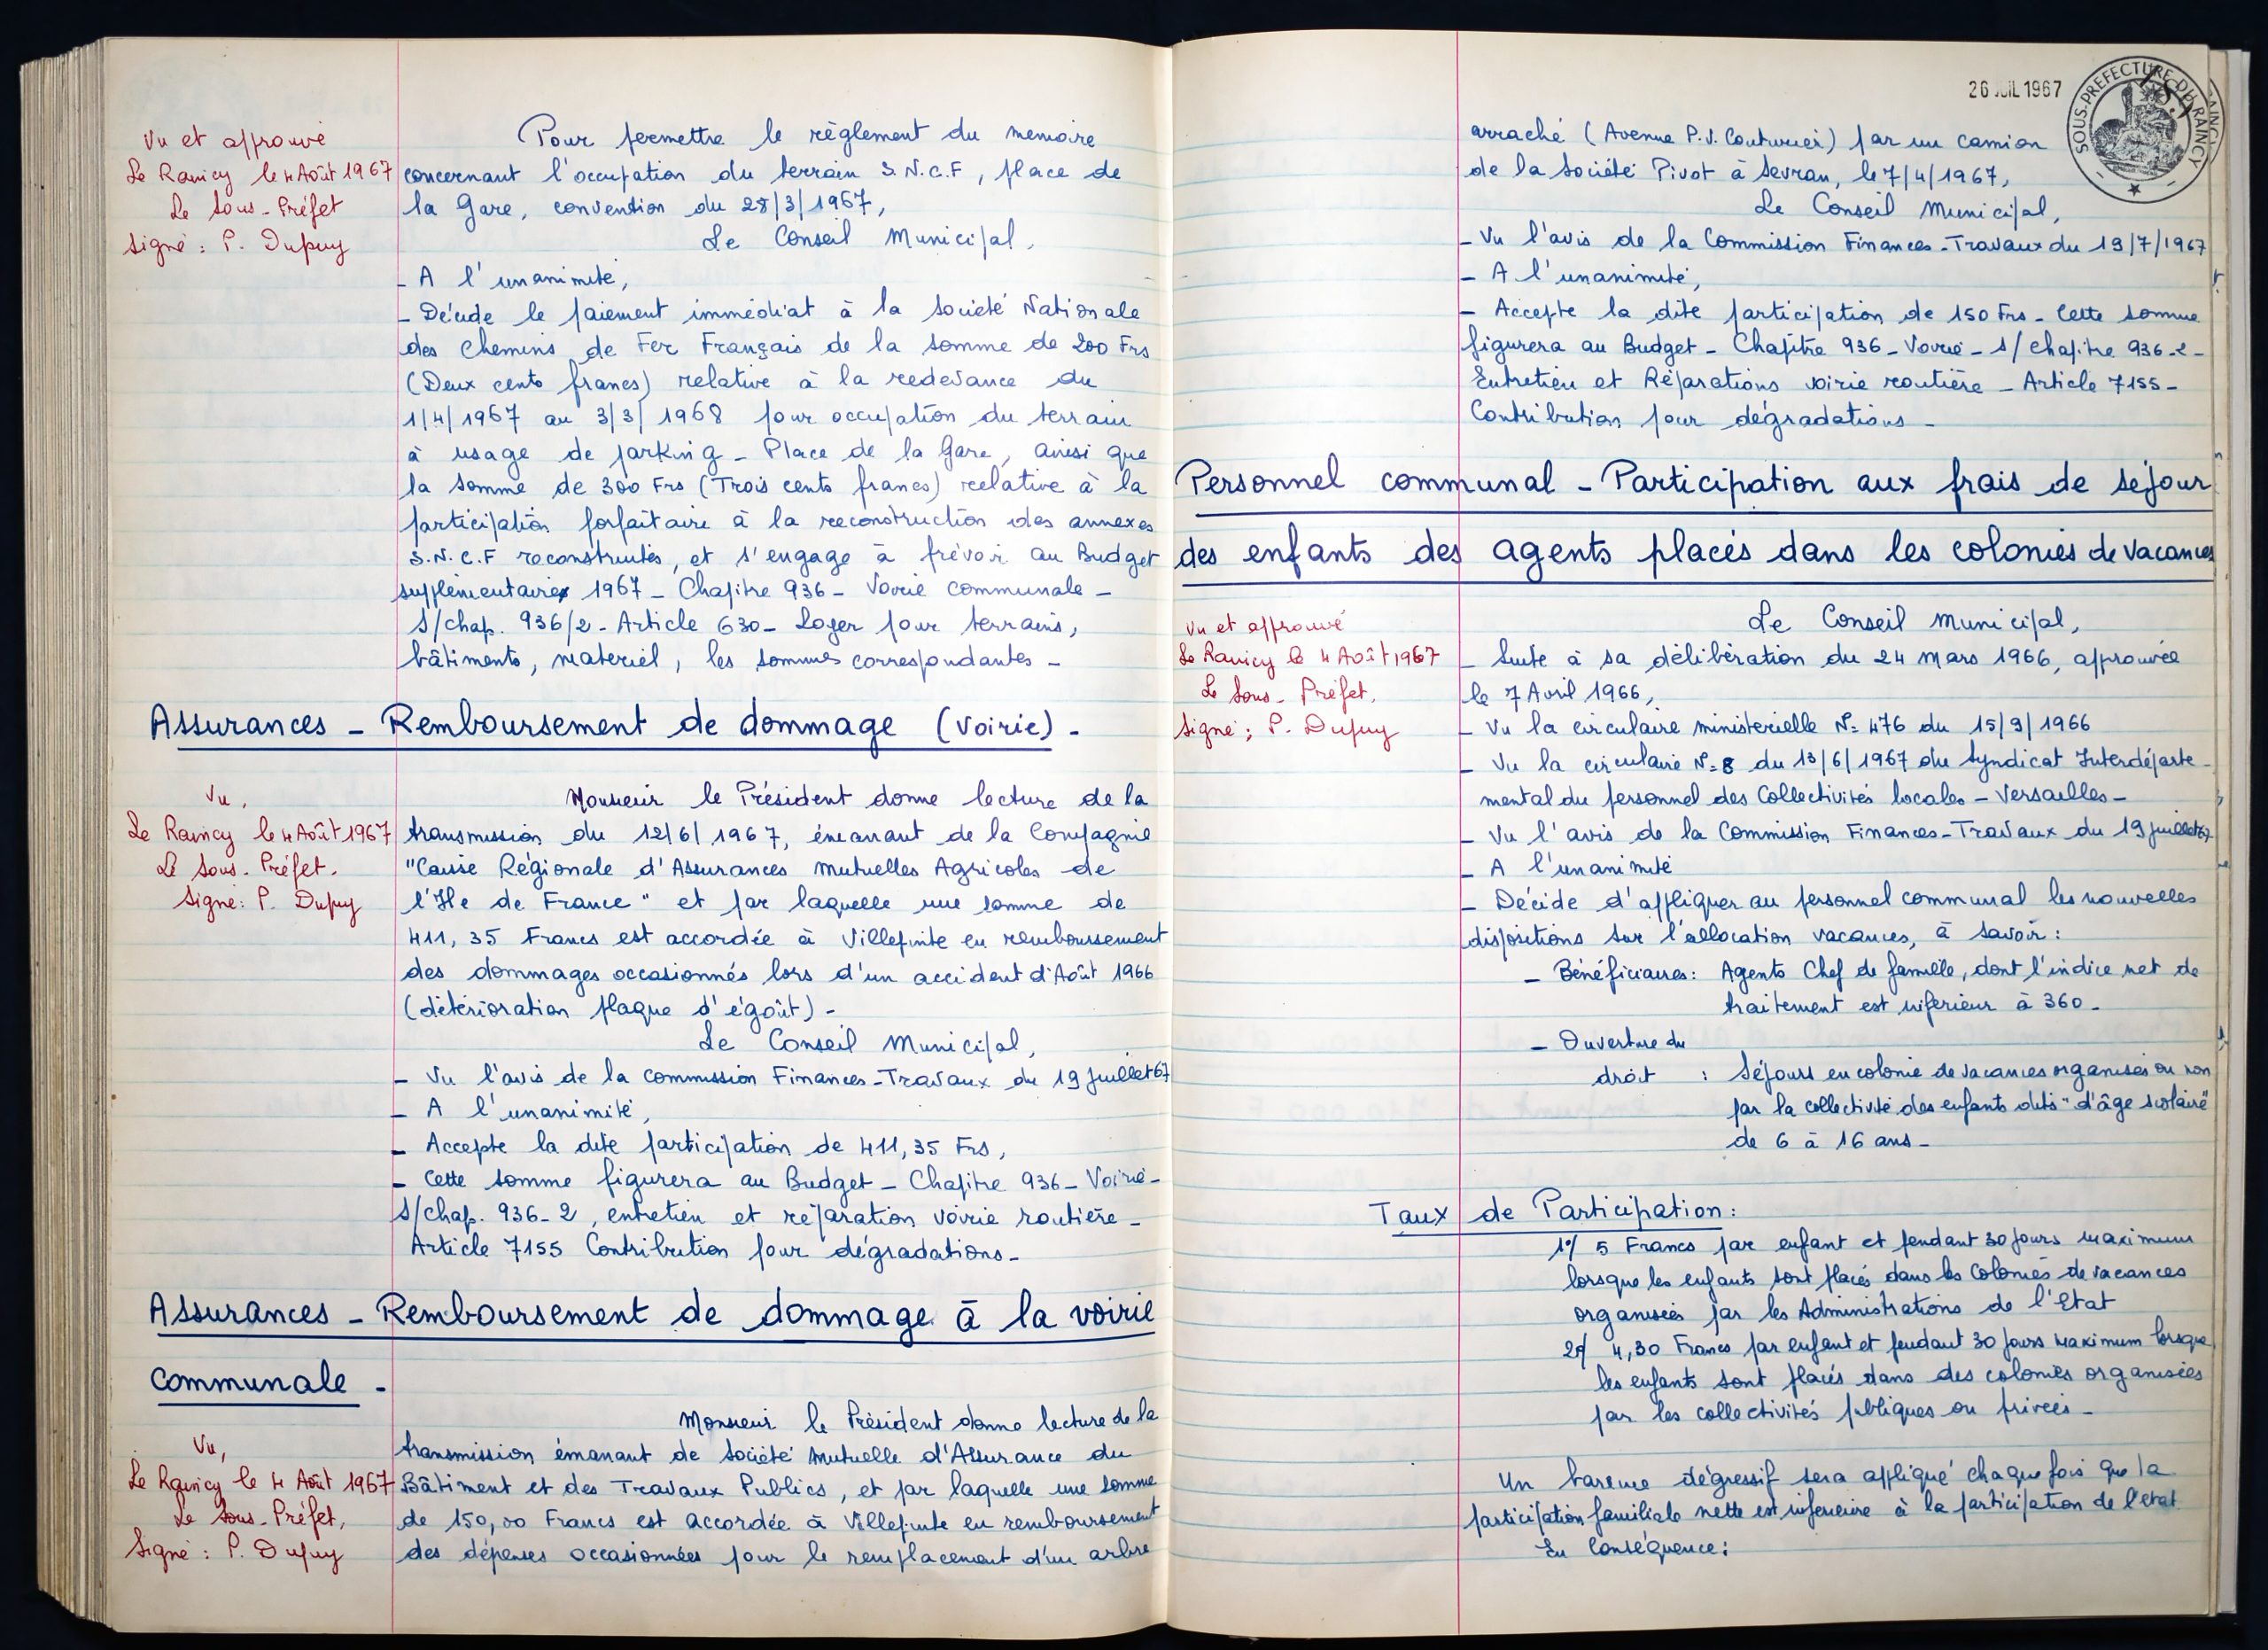 Vu et approuvé
Le Raincy le 4 Août 1967
Le Sous-Préfet
Signé : P. Dupuy
Pour permettre le règlement du memoire
concernant l'occupation du terrain S.N.C.F, place de
la Gare, convention du 28/3/1967,
Le Conseil Municipal,
- A l'unanimité,
- Décide le paiement immédiat à la Société Nationale
des Chemins de Fer Français de la somme de 200 Frs
(Deux cents francs) relative à la redevance du
1/4/1967 au 3/3/1968 pour occupation du terrain
à usage de parking - Place de la Gare, ainsi que
la somme de 300 Frs (Trois cents francs) relative à la
participation forfaitaire à la reconstruction des annexes
S.N.C.F reconstruites, et s'engage à prévoir au Budget
supplémentaire 1967 - Chapitre 936 - Voirie communale -
S/chap. 936/2 - Article 630 - Loyer pour terrains,
bâtiments, materiel, les sommes correspondantes -
Assurances - Remboursement de dommage (Voirie) -
Vu,
Le Raincy le 4 Août 1967
Le Sous-Préfet.
Signé: P. Dupuy
Monsieur le Président donne lecture de la
transmission du 12/6/1967, émanant de la Compagnie
"Caisse Régionale d'Assurances Mutuelles Agricoles de
l'Ile de France" et par laquelle une somme de
411,35 Francs est accordée à Villepinte en remboursement
des dommages occasionnés lors d'un accident d'Août 1966
(détérioration plaque d'égoût) -
Le Conseil Municipal,
- Vu l'avis de la commission Finances-Travaux du 19 Juillet 67
- A l'unanimité,
- Accepte la dite participation de 411,35 Frs,
- Cette somme figurera au Budget - Chapitre 936 - Voirie -
S/chap. 936-2, entretien et réparation voirie routière -
Article 7155 Contribution pour dégradations -
Assurances - Remboursement de dommage à la voirie
communale -
Vu,
Le Raincy le 4 Août 1967
Le Sous-Préfet,
Signé : P. Dupuy
Monsieur le Président donne lecture de la
transmission émanant de Société Mutuelle d'Assurance du
Bâtiment et des Travaux Publics, et par laquelle une somme
de 150,00 Francs est accordée à Villepinte en remboursement
des dépenses occasionnées pour le remplacement d'un arbre
26 JUIL 1967
SOUS-PREFECTURE DU RAINCY
arraché (Avenue P.V. Couturier) par un camion
de la Société Pivot à Sevran, le 7/4/1967,
Le Conseil Municipal,
- Vu l'avis de la Commission Finances-Travaux du 19/7/1967
- A l'unanimité,
- Accepte la dite participation de 150 Frs - Cette somme
figurera au Budget - Chapitre 936 - Voirie - S/chapitre 936-2 -
Entretien et Réparations voirie routière - Article 7155 -
Contribution pour dégradations -
Personnel communal - Participation aux frais de séjour
des enfants des agents placés dans les colonies de vacances
Vu et approuvé
Le Raincy le 4 Août 1967
Le Sous-Préfet,
Signé : P. Dupuy
Le Conseil Municipal,
- Suite à sa délibération du 24 mars 1966, approuvée
le 7 Avril 1966,
- Vu la circulaire ministerielle N° 476 du 15/9/1966
- Vu la circulaire N° 8 du 13/6/1967 du Syndicat Interdéparte-
mental du personnel des Collectivités locales - Versailles -
- Vu l'avis de la Commission Finances-Travaux du 19 Juillet 67
- A l'unanimité
- Décide d'appliquer au personnel communal les nouvelles
dispositions sur l'allocation vacances, à savoir :
- Bénéficiaires : Agents Chef de famille, dont l'indice net de
traitement est inférieur à 360 -
- Ouverture du
droit : Séjours en colonie de vacances organisés ou non
par la collectivité des enfants dits "d'âge scolaire"
de 6 à 16 ans -
Taux de Participation :
1°/ 5 Francs par enfant et pendant 30 jours maximum
lorsque les enfants sont placés dans les Colonies de vacances
organisées par les Administrations de l'Etat
2°/ 4,30 Francs par enfant et pendant 30 jours maximum lorsque
les enfants sont placés dans des colonies organisées
par les collectivités publiques ou privées -
Un bareme dégressif sera appliqué chaque fois que la
participation familiale nette est inférieure à la participation de l'état
En Conséquence :